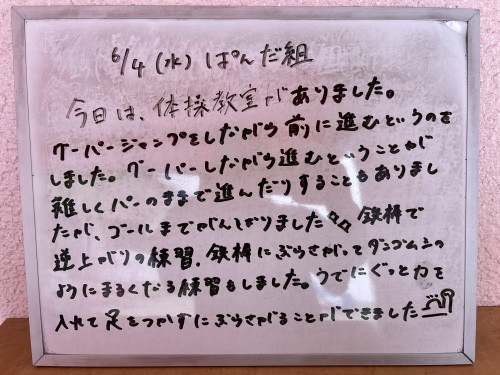 6/4 (水) ぱんだ組
今日は、体操教室がありました。
グーパージャンプをしながら前に進むというのを
しました。グーパーしながら進むということが
難しくパーのままで進んだりすることもありまし
たが、ゴールまでがんばりました 鉄棒で
逆上がりの練習、鉄棒にぶらさがってダンゴムシの
ようにまるくなる練習もしました。うでにぐっと力を
入れて足をつかずにぶらさがることができました